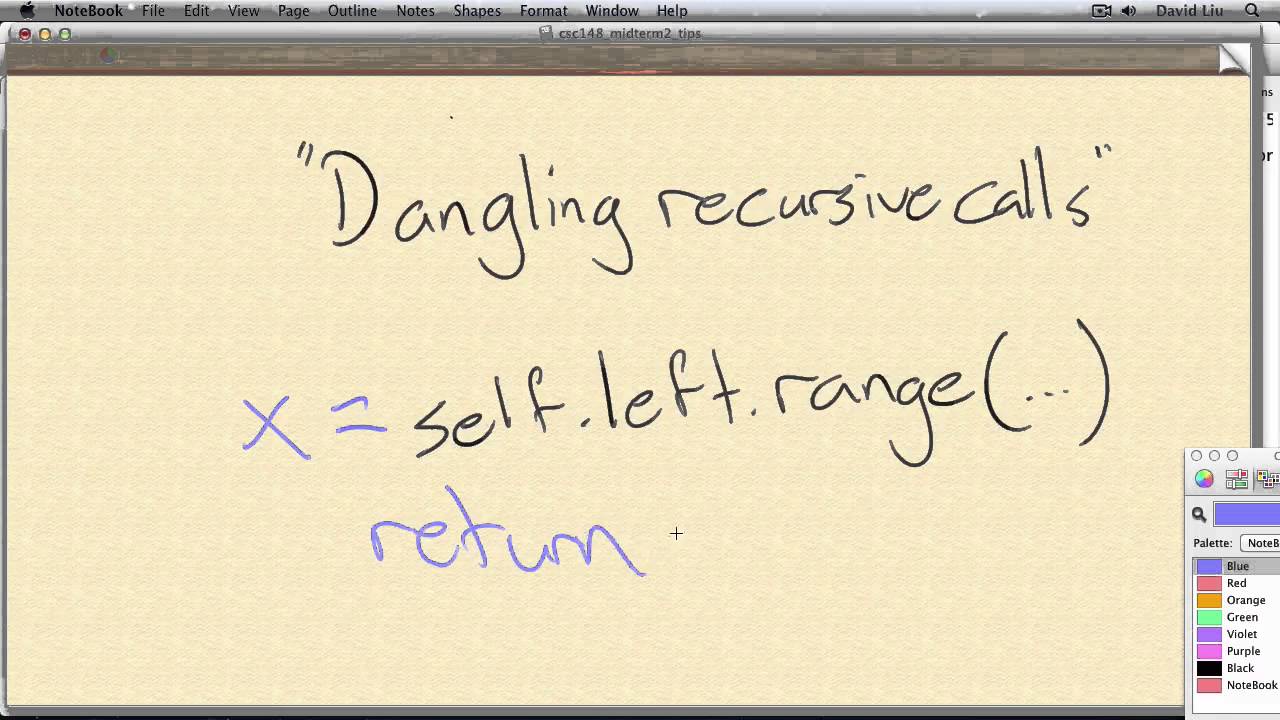 NoteBook File Edit View Page Outline Notes Shapes Format Window Help David Liu
csc148_midterm2_tips
ms
5
or
"Dangling recursive calls"
x = self.left.range(...)
return
C
Palette: NoteB
Blue
Red
Orange
Green
Violet
Purple
Black
NoteBook